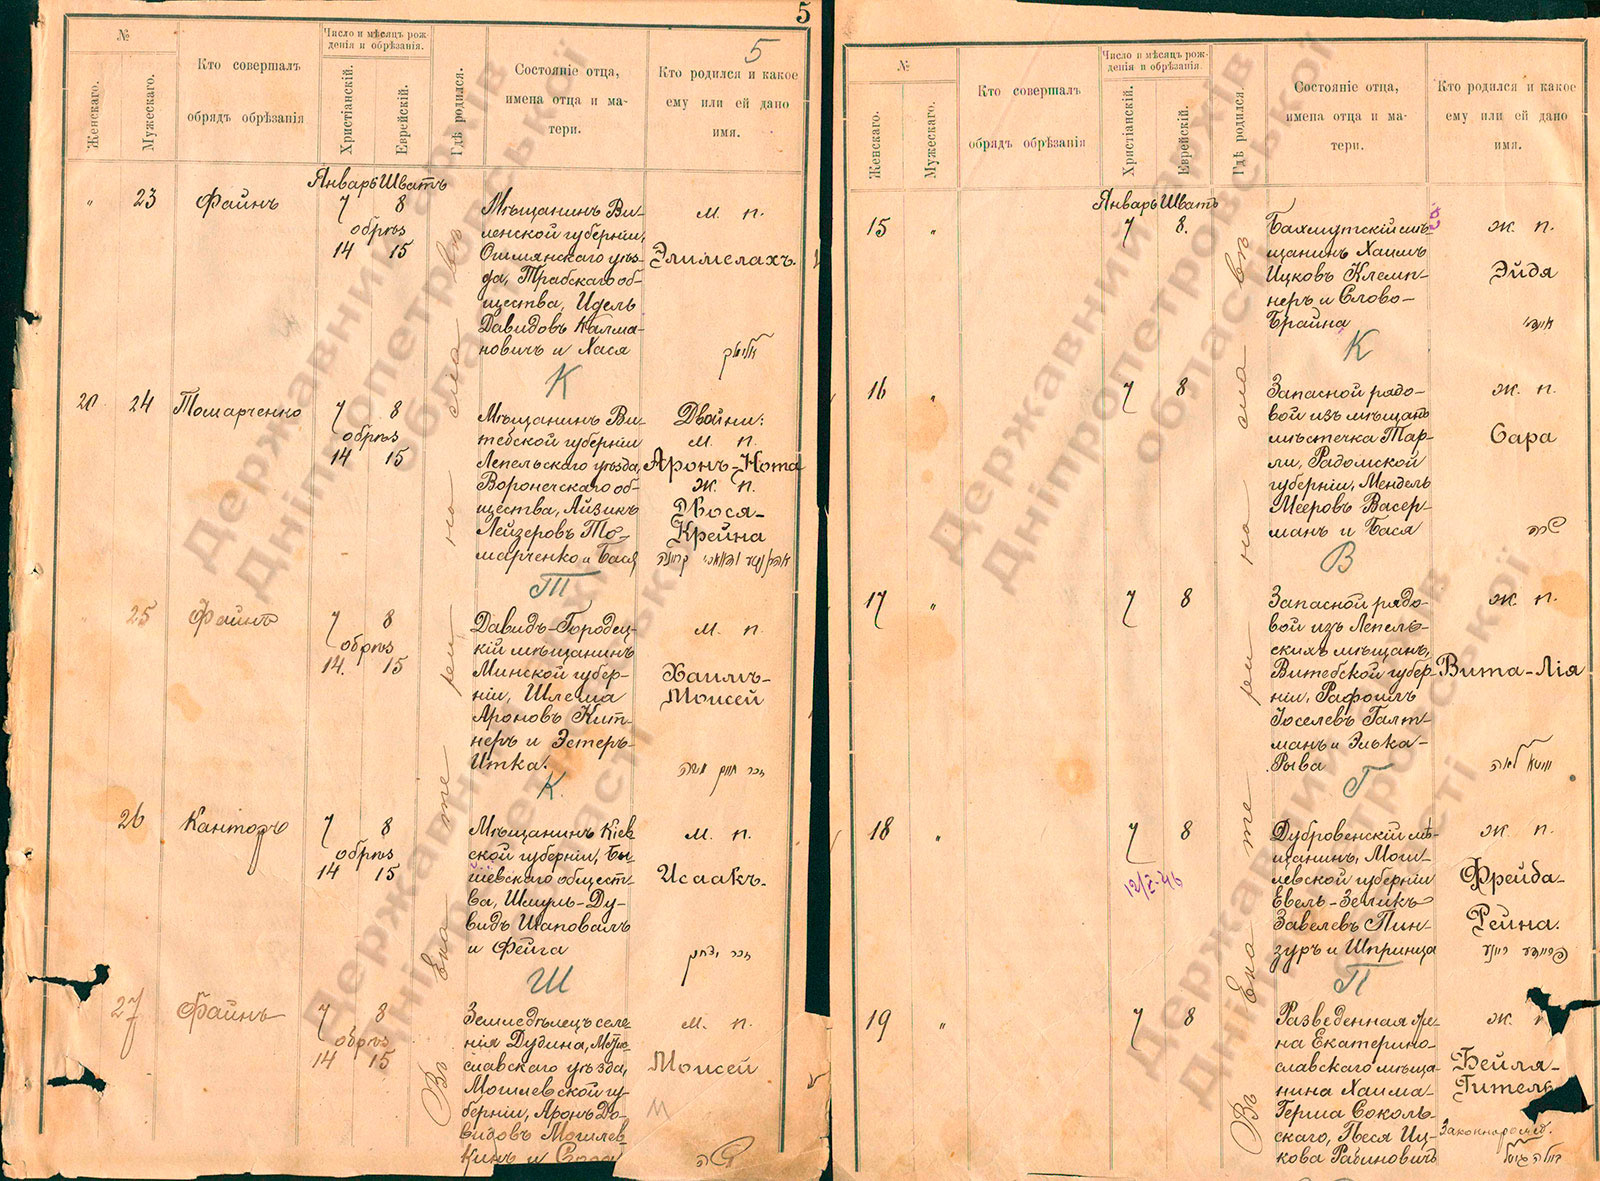 5
5
№
Женскаго.
Мужескаго.
Кто совершалъ
обрядъ обрѣзанія
Число и мѣсяцъ рож-
денія и обрѣзанія.
Христіанскій.
Еврейскій.
Гдѣ родился.
Состояніе отца,
имена отца и ма-
тери.
Кто родился и какое
ему или ей дано
имя.
Январь Шватъ
" 23 Файнъ 7 8
обрѣз
14 15
Мѣщанинъ Ви-
ленской губерніи,
Ошмянскаго уѣз-
да, Трабскаго об-
щества, Идель
Давидовъ Калма-
новичъ и Хася
м. п.
Элимелахъ.
К
20 24 Томарченко 7 8
обрѣз
14 15
Мѣщанинъ Ви-
тебской губерніи
Лепельскаго уѣзда,
Воронечскаго об-
щества, Айзикъ
Лейзеровъ То-
марченко и Бася
Двойни:
м. п.
Аронъ-Нота
ж. п.
Двося-
Крейна
Т
" 25 Файнъ 7 8
обрѣз
14. 15
Давидъ-Городец-
кій мѣщанинъ
Минской губер-
ніи, Шлема
Ароновъ Кит-
неръ и Эстеръ-
Итка.
м. п.
Хаимъ-
Моисей
К.
26 Канторъ 7 8
обрѣз
14 15
Мѣщанинъ Кіев
ской губерніи, Бы-
шевскаго общест-
ва, Шмуль-Ду-
видъ Шаповалъ
и Фейга
м. п.
Исаакъ.
Ш
27 Файнъ 7 8
обрѣз
14 15
Земледѣлецъ селе-
нія Дудина, Мсти-
славскаго уѣзда,
Могилевской гу-
берніи, Аронъ До-
видовъ Могилев-
кинъ и
м. п.
Моисей
М
Въ Екате
ри
но
сла
вѣ
№
Женскаго.
Мужескаго.
Кто совершалъ
обрядъ обрѣзанія
Число и мѣсяцъ рож-
денія и обрѣзанія.
Христіанскій.
Еврейскій.
Гдѣ родился.
Состояніе отца,
имена отца и ма-
тери.
Кто родился и какое
ему или ей дано
имя.
Январь Шватъ
15 " 7 8.
Бахмутскій мѣ-
щанинъ Хаимъ
Ицковъ Клемп-
неръ и Слово-
Брайна
ж. п.
Эйдя
К
16 " 7 8
Запасной рядо-
вой изъ мѣщанъ
мѣстечка Тар-
ли, Радомской
губерніи, Мендель
Мееровъ Васер-
манъ и Бася
ж. п.
Сара
שרה
В
17 " 7 8
Запасной рядо-
вой изъ Лепель-
скихъ мѣщанъ,
Витебской губер-
ніи, Рафоилъ
Іоселевъ Галт-
манъ и Элька-
Рыва
ж. п.
Вита-Лія
Г
18 " 7 8
12/X-46
Дубровенскій мѣ-
щанинъ, Моги-
левской губерніи
Евель-Зеликъ
Завелевъ Пин-
зуръ и Шпринца
ж. п.
Фрейда-
Рейна.
П
19 " 7 8
Разведенная же-
на Екатерино-
славскаго мѣща-
нина Хаима-
Герша Соколь-
скаго, Песя Иц-
кова Рабиновичъ
ж.
Бейля-
Гитель
Въ Екате
ри
но
сла
вѣ
Державний архів
Дніпропетровської
області
Державний архів
Дніпропетровської
області